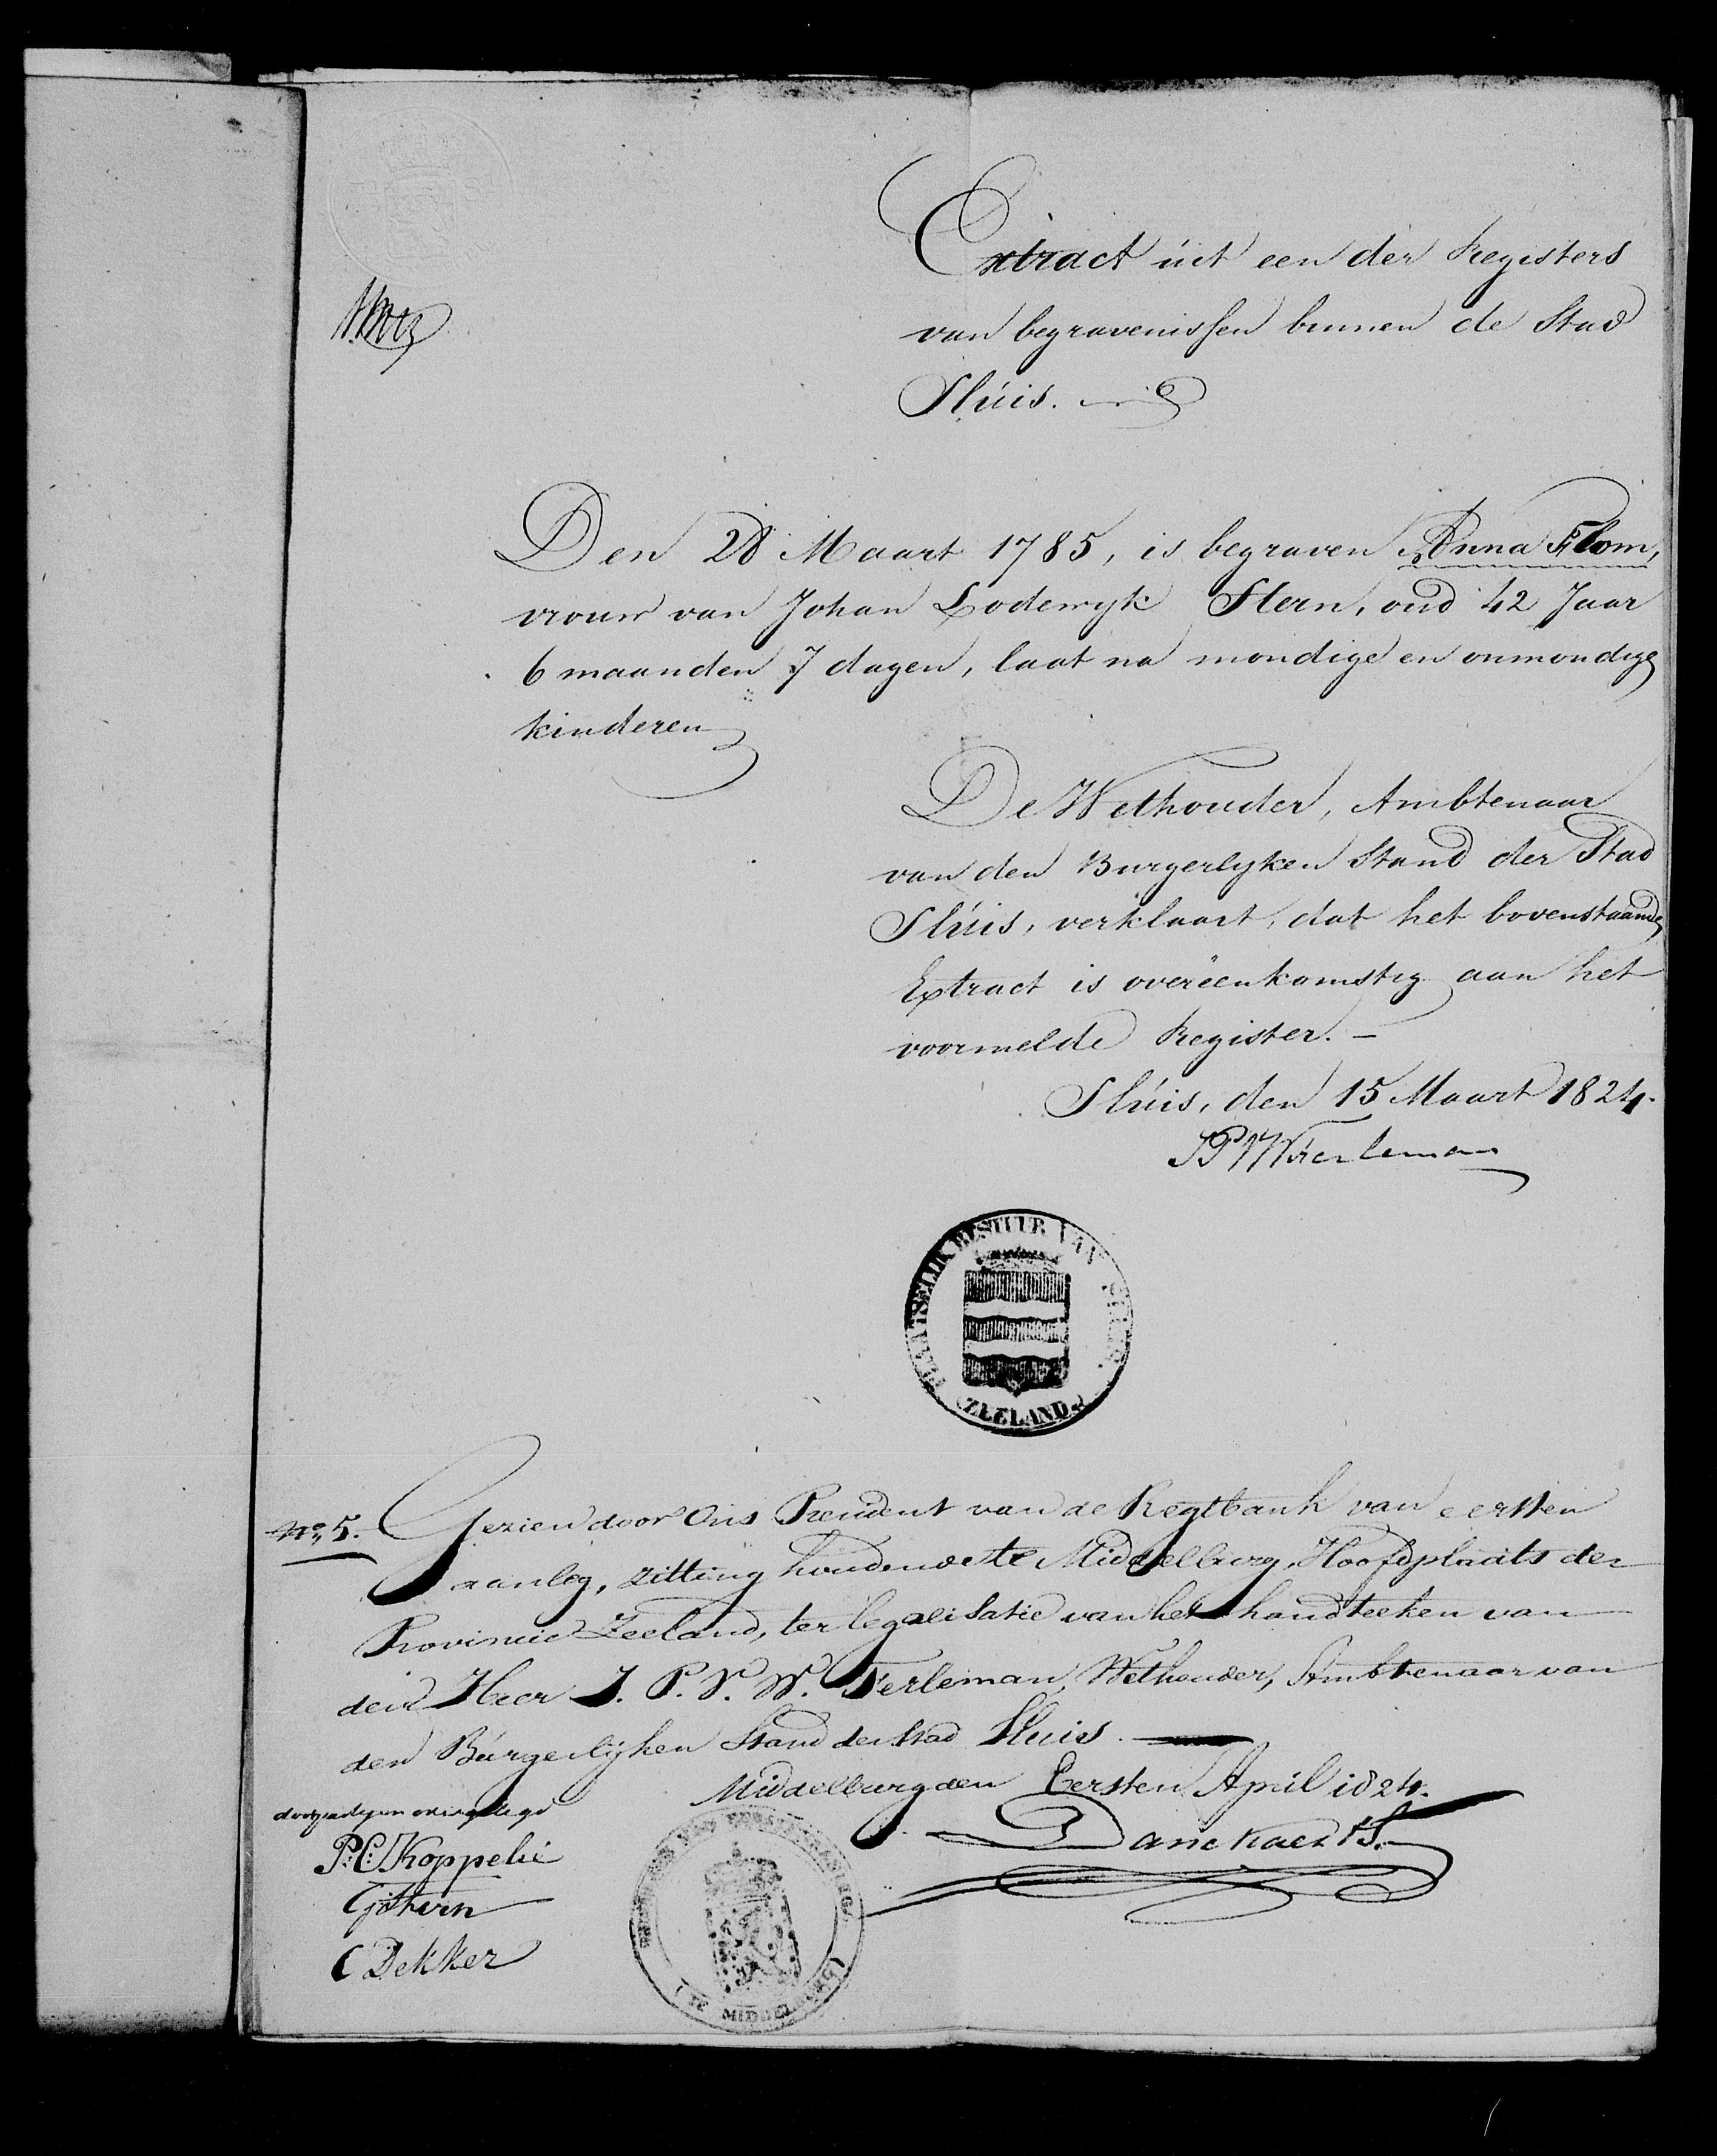 Extract uit een der Registers
van begravenissen binnen de Stad
Sluis.
Den 28 Maart 1785, is begraven Anna Flom,
vrouw van Johan Lodewyk Stern, oud 42 Jaar
6 maanden 7 dagen, laat na mondige en onmondige
kinderen
De Wethouder, Ambtenaar
van den Burgerlyken Stand der Stad
Sluis, verklaart, dat het bovenstaande
Extract is overëenkomstig aan het
voormelde Register. –
Sluis, den 15 Maart 1824.
PLAATSELIJK BESTUUR VAN SLUIS
(ZEELAND.)
No. 5. Gezien door Ons President van de Regtbank van eersten
aanleg, zitting houdende te Middelburg, Hoofdplaats der
Provincie Zeeland, ter legalisatie van het handteeken van
den Heer J. P. V. W. Terleman, Wethouder, Ambtenaar van
den Burgerlijken Stand der Stad Sluis.
Middelburg den Eersten April 1824.
Danckaerts.
P: C: Koppelie
GJ Stern
C Dekker
TE MIDDELBURG